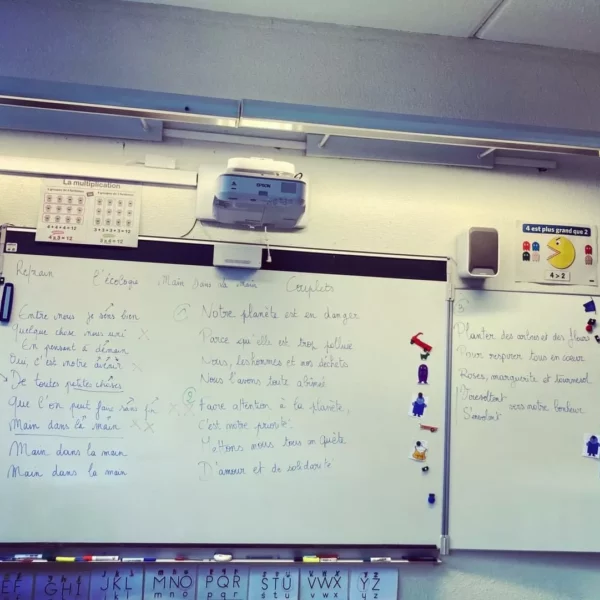 La multiplication
4+4+4=12
4x3=12
3+3+3+3=12
3x4=12
EPSON
4 est plus grand que 2
4 > 2
Refrain L'écologie Main dans la main Couplets
Entre nous je sens bien
Quelque chose nous uni
En pensant à demain
Oui, c'est notre avenir
De toutes petites choses
Que l'on peut faire sans fin
Main dans la main
Main dans la main
Main dans la main
① Notre planète est en danger
Parce qu'elle est trop polluée
Nous, les hommes et nos déchets
Nous l'avons toute abîmée
② Faire attention à la planète,
C'est notre priorité.
Mettons nous tous en quête
D'amour et de solidarité
3
Planter des arbres et des fleurs
Pour respirer tous en cœur
Roses, marguerite et tournesol
S'envolent vers notre bonheur
EF GHI JKL MNO PQR STU VWX YZ